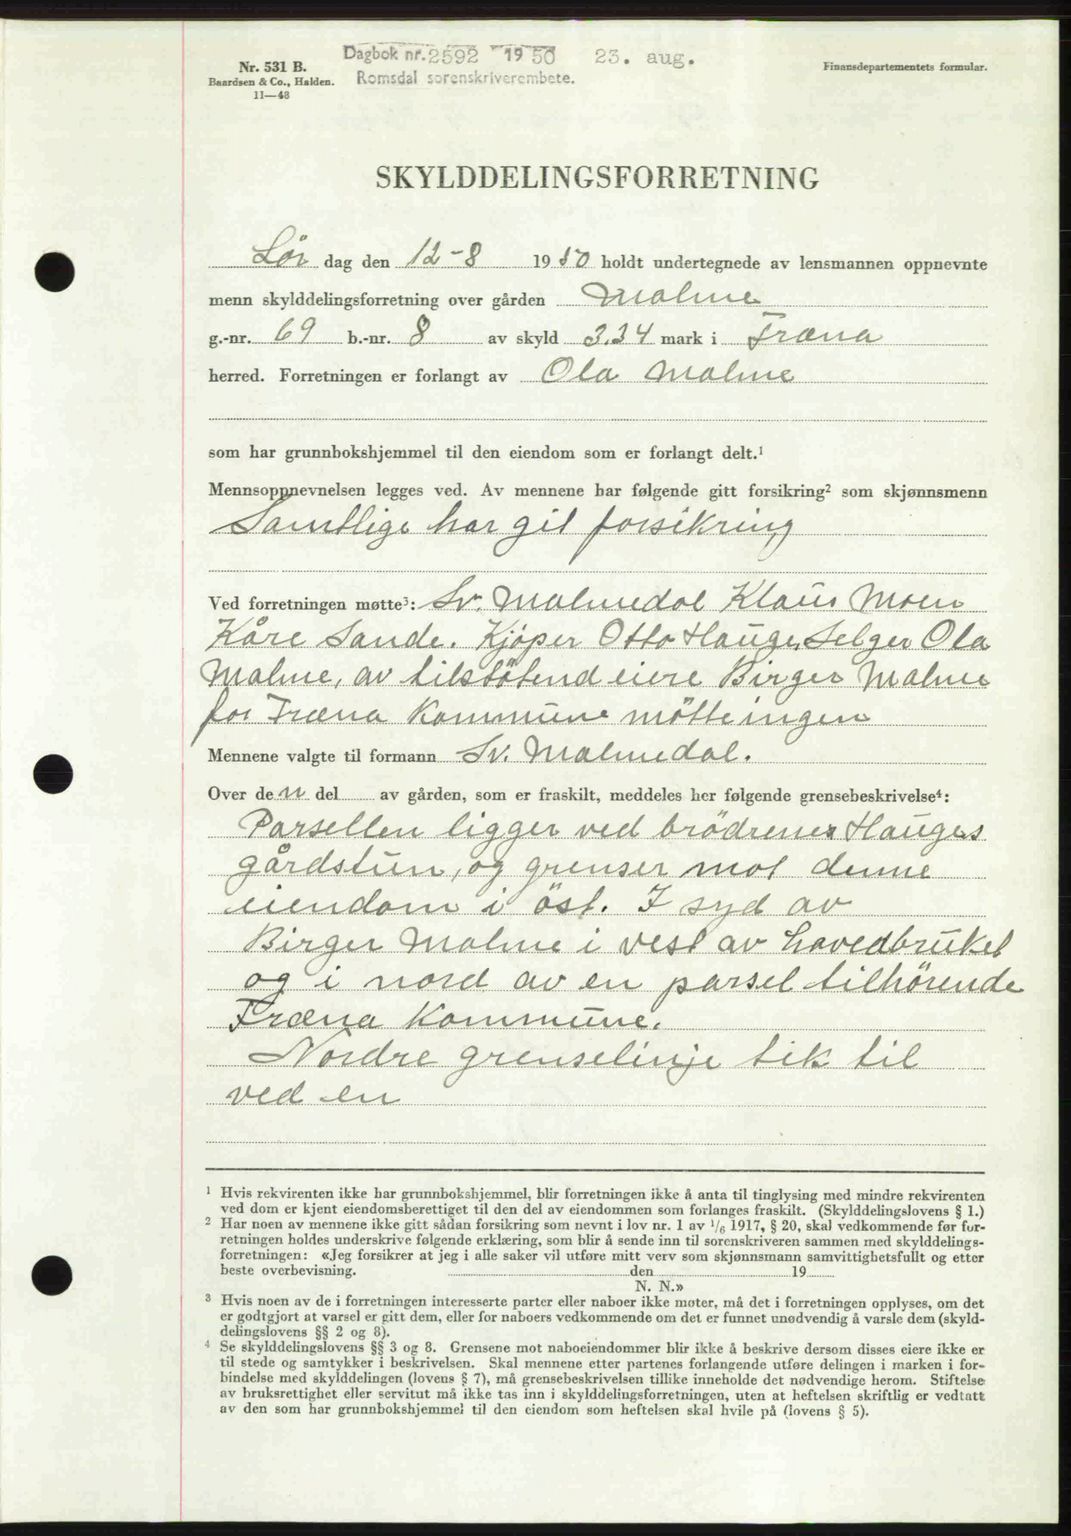 Dagbok nr. 2592 1950 23. aug.
Romsdal sorenskriverembete.
Nr. 531 B.
Baardsen & Co., Halden.
11—48
Finansdepartementets formular.
SKYLDDELINGSFORRETNING
Lør dag den 12-8 1950 holdt undertegnede av lensmannen oppnevnte
menn skylddelingsforretning over gården Malme
g.-nr. 69 b.-nr. 8 av skyld 3.34 mark i Fræna
herred. Forretningen er forlangt av Ola Malme
som har grunnbokshjemmel til den eiendom som er forlangt delt.¹
Mennsoppnevnelsen legges ved. Av mennene har følgende gitt forsikring² som skjønnsmenn
Samtlige har git forsikring
Ved forretningen møtte³: Sv. Malmedal Klaus Moen
Kåre Sande. Kjøper Otto Hauge, Selger Ola
Malme, av tilstötend eiere Birger Malme
for Fræna Kommune mötte ingen
Mennene valgte til formann Sv. Malmedal.
Over den del av gården, som er fraskilt, meddeles her følgende grensebeskrivelse⁴:
Parsellen ligger ved brödrenes Hauges
gårdstun, og grenser mot denne
eiendom i öst. I syd av
Birger Malme i vest av hovedbruket
og i nord av en parsel tilhörende
Fræna Kommune.
Nordre grenselinje tik til
ved en
¹ Hvis rekvirenten ikke har grunnbokshjemmel, blir forretningen ikke å anta til tinglysing med mindre rekvirenten
ved dom er kjent eiendomsberettiget til den del av eiendommen som forlanges fraskilt. (Skylddelingslovens § 1.)
² Har noen av mennene ikke gitt sådan forsikring som nevnt i lov nr. 1 av 1/6 1917, § 20, skal vedkommende før for-
retningen holdes underskrive følgende erklæring, som blir å sende inn til sorenskriveren sammen med skylddelings-
forretningen: «Jeg forsikrer at jeg i alle saker vil utføre mitt verv som skjønnsmann samvittighetsfullt og etter
beste overbevisning. den 19
N. N.»
³ Hvis noen av de i forretningen interesserte parter eller naboer ikke møter, må det i forretningen opplyses, om det
er godtgjort at varsel er gitt dem, eller for naboers vedkommende om det er funnet unødvendig å varsle dem (skyld-
delingslovens §§ 2 og 8).
⁴ Se skylddelingslovens §§ 3 og 8. Grensene mot naboeiendommer blir ikke å beskrive dersom disses eiere ikke er
til stede og samtykker i beskrivelsen. Skal mennene etter partenes forlangende utføre delingen i marken i for-
bindelse med skylddelingen (lovens § 7), må grensebeskrivelsen tillike inneholde det nødvendige herom. Stiftelse
av bruksrettighet eller servitut må ikke tas inn i skylddelingsforretningen, uten at heftelsen skriftlig er vedtatt
av den som har grunnbokshjemmel til den eiendom som heftelsen skal hvile på (lovens § 5).